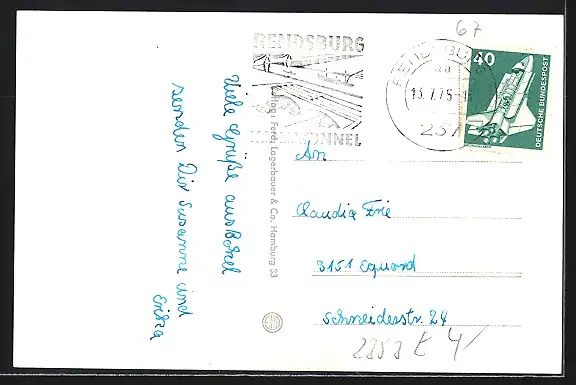 67
RENDSBURG
40
RENDSBURG
aa
13.7.75
237
DEUTSCHE BUNDESPOST
Viele Grüße aus Bokel
senden Dir Susanne und
Erika
Verlag: Ferd. Lagerbauer & Co. Hamburg 33
An
Claudia Erie
3151 Equord
Schneiderstr. 24